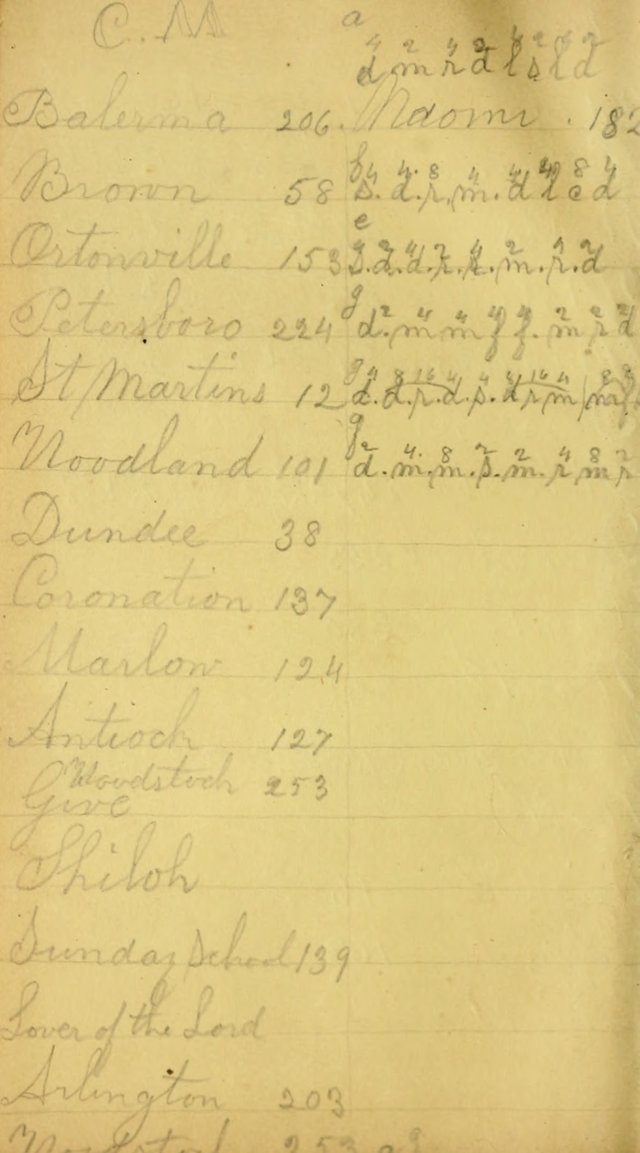 C. M a
4 2 4 2 4 2 4 2
d m r d l s l d
Balerma 206. Naomi . 182
Brown 58 s. d. r, m. d l d
e
Ortonville 153 s. d. d. r. m. r. d
g
Petersboro 224 d. m m f f. m r d
St Martins 12 d. d. r. d. s. d r m
g
Woodland 101 d. m. m. s. m. r m r
Dundee 38
Coronation 137
Marlow 124
Antioch 127
Woodstock 253
Give
Shiloh
Sunday School 139
Lover of the Lord
Arlington 203
Woodstock 253